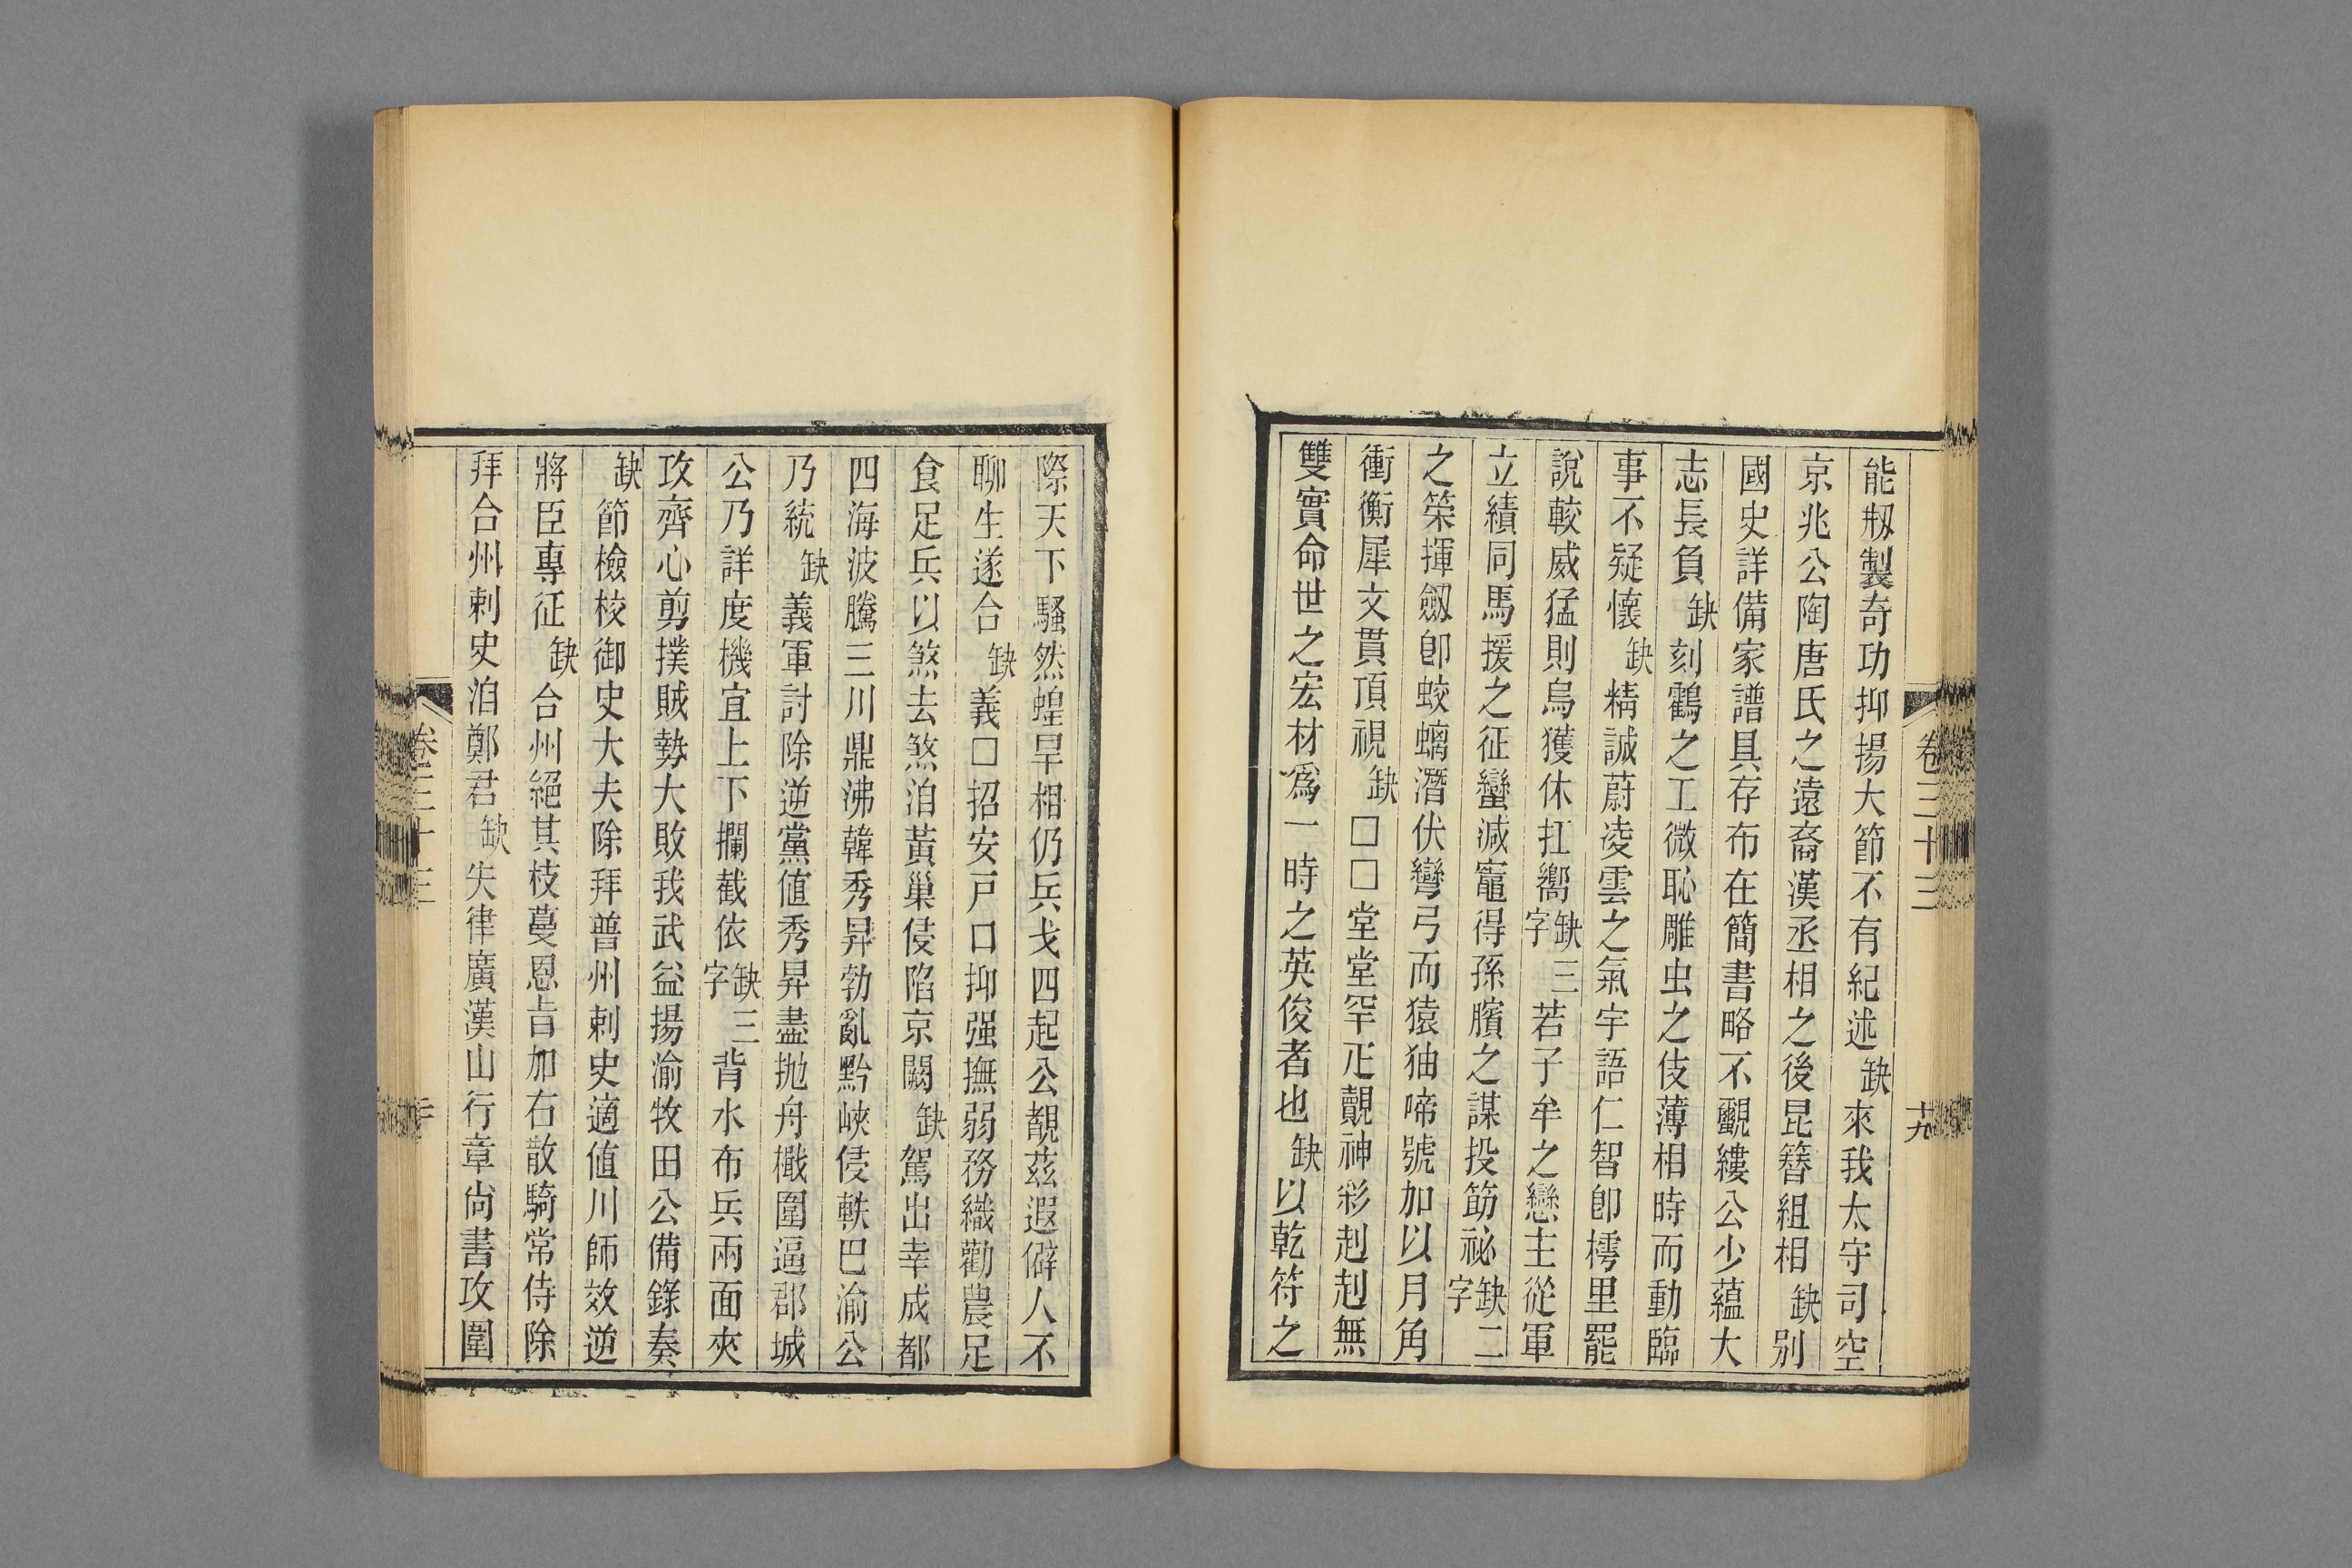 卷三十三 十九
能刱製奇功抑揚大節不有紀述缺來我太守司空
京兆公陶唐氏之遠裔漢丞相之後昆簪組相缺別
國史詳備家譜具存布在簡書略不覼縷公少蘊大
志長負缺刻鶴之工微恥雕虫之伎薄相時而動臨
事不疑懷缺精誠蔚凌雲之氣宇語仁智卽樗里罷
說較威猛則烏獲休扛嚮缺三字若子牟之戀主從軍
立績同馬援之征蠻減竈得孫臏之謀投筯祕缺二字
之筞揮劔卽蛟螭潛伏彎弓而猿狖啼號加以月角
衝衡犀文貫頂視缺□□堂堂罕疋覿神彩赳赳無
雙實命世之宏材爲一時之英俊者也缺以乾符之
際天下騷然蝗旱相仍兵戈四起公覩茲遐僻人不
聊生遂合缺義□招安戸口抑强撫弱務織勸農足
食足兵以煞去煞洎黃巢侵陷京闕缺駕出幸成都
四海波騰三川鼎沸韓秀昇勃亂黔峽侵軼巴渝公
乃統缺義軍討除逆黨値秀昇盡抛舟檝圍逼郡城
公乃詳度機宜上下攔截依缺三字背水布兵兩面夾
攻齊心剪撲賊勢大敗我武益揚渝牧田公備錄奏
缺節檢校御史大夫除拜普州剌史適値川師效逆
將臣專征缺合州絕其枝蔓恩㫖加右散騎常侍除
拜合州剌史洎鄭君缺失律廣漢山行章尙書攻圍
卷三十三